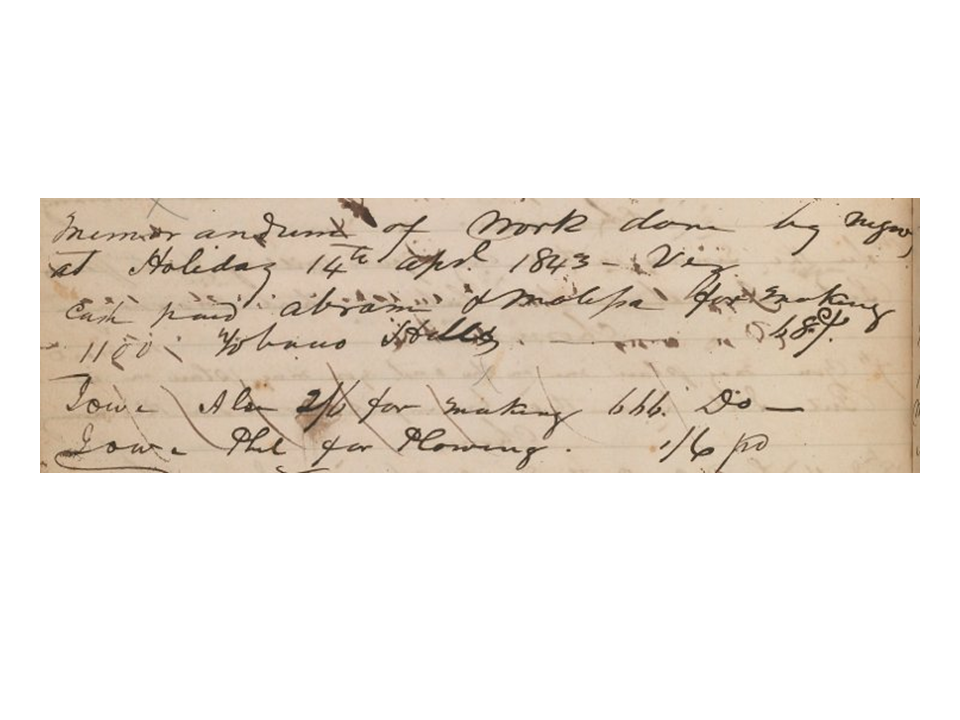 Memorandum of Work done by negros
at Holiday 14th apl. 1843 - Viz
Cash paid abram & Molissa for making
1100 Tobaco Hills - 48 f.
I owe Alen 2/6 for making 666. Do —
I owe Phil for Plowing. 1/6 pd